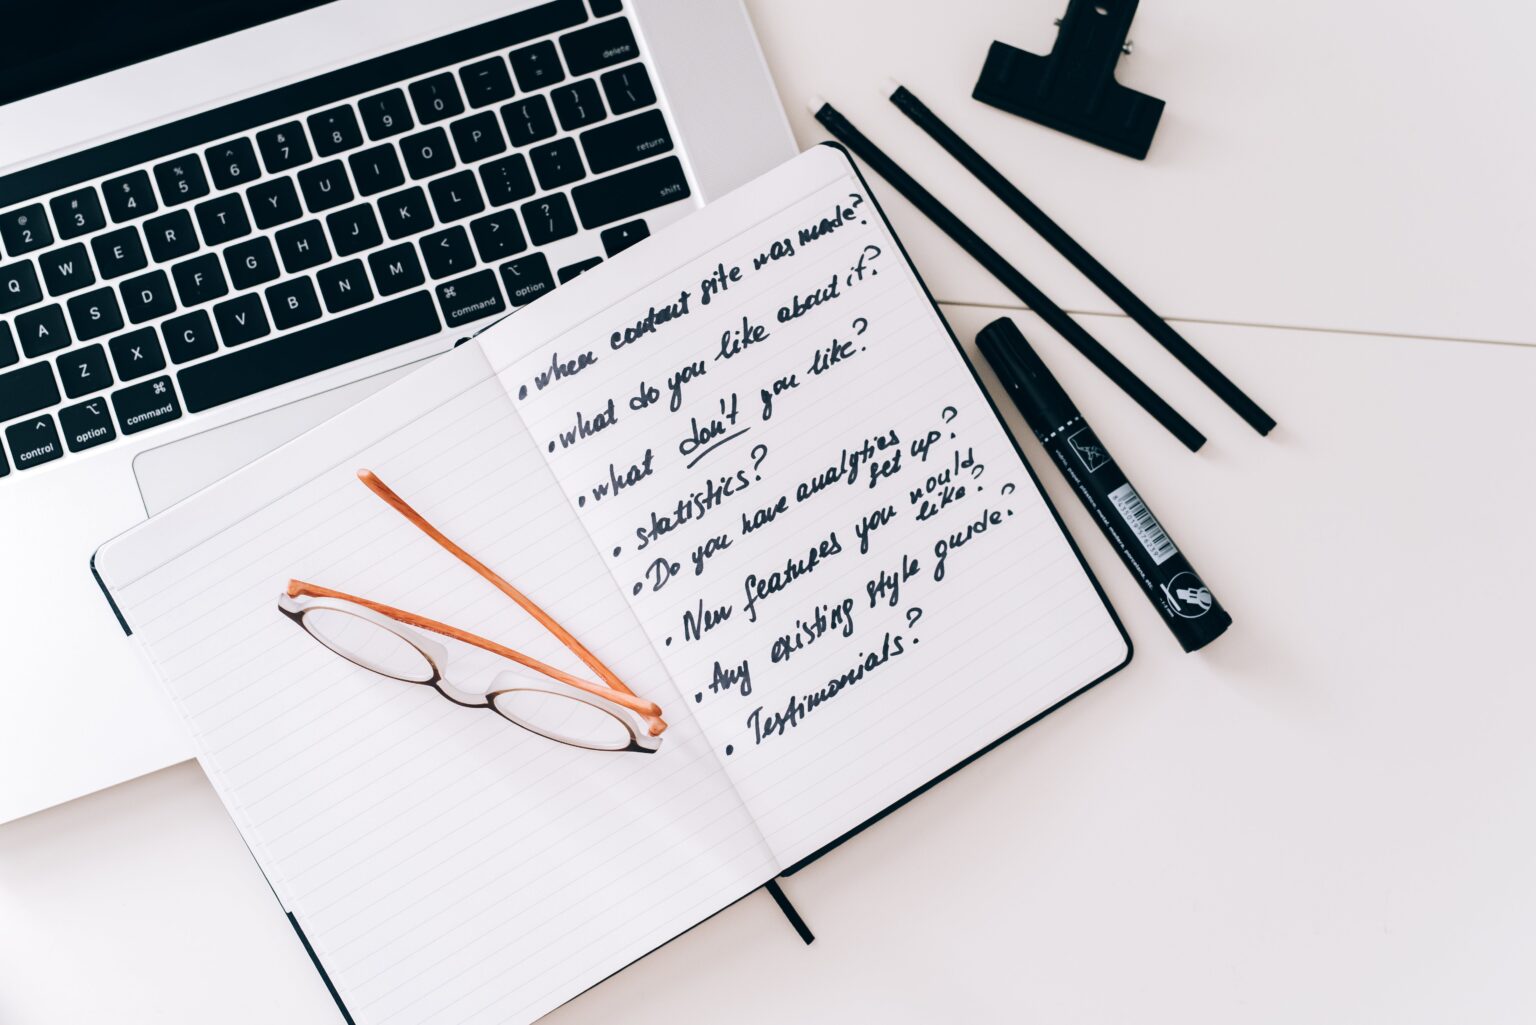 delete
return
shift
command
option
control
option
command
@ 2
# 3
$ 4
% 5
^ 6
& 7
* 8
( 9
) 0
— -
+ =
Q W E R T Y U I O P { [ } ] | \
A S D F G H J K L : ; " '
Z X C V B N M < , > . ? /
• when content site was made?
• what do you like about it?
• what don't you like?
• statistics?
• Do you have analytics
set up?
• New features you would
like?
• Any existing style guide?
• Testimonials?